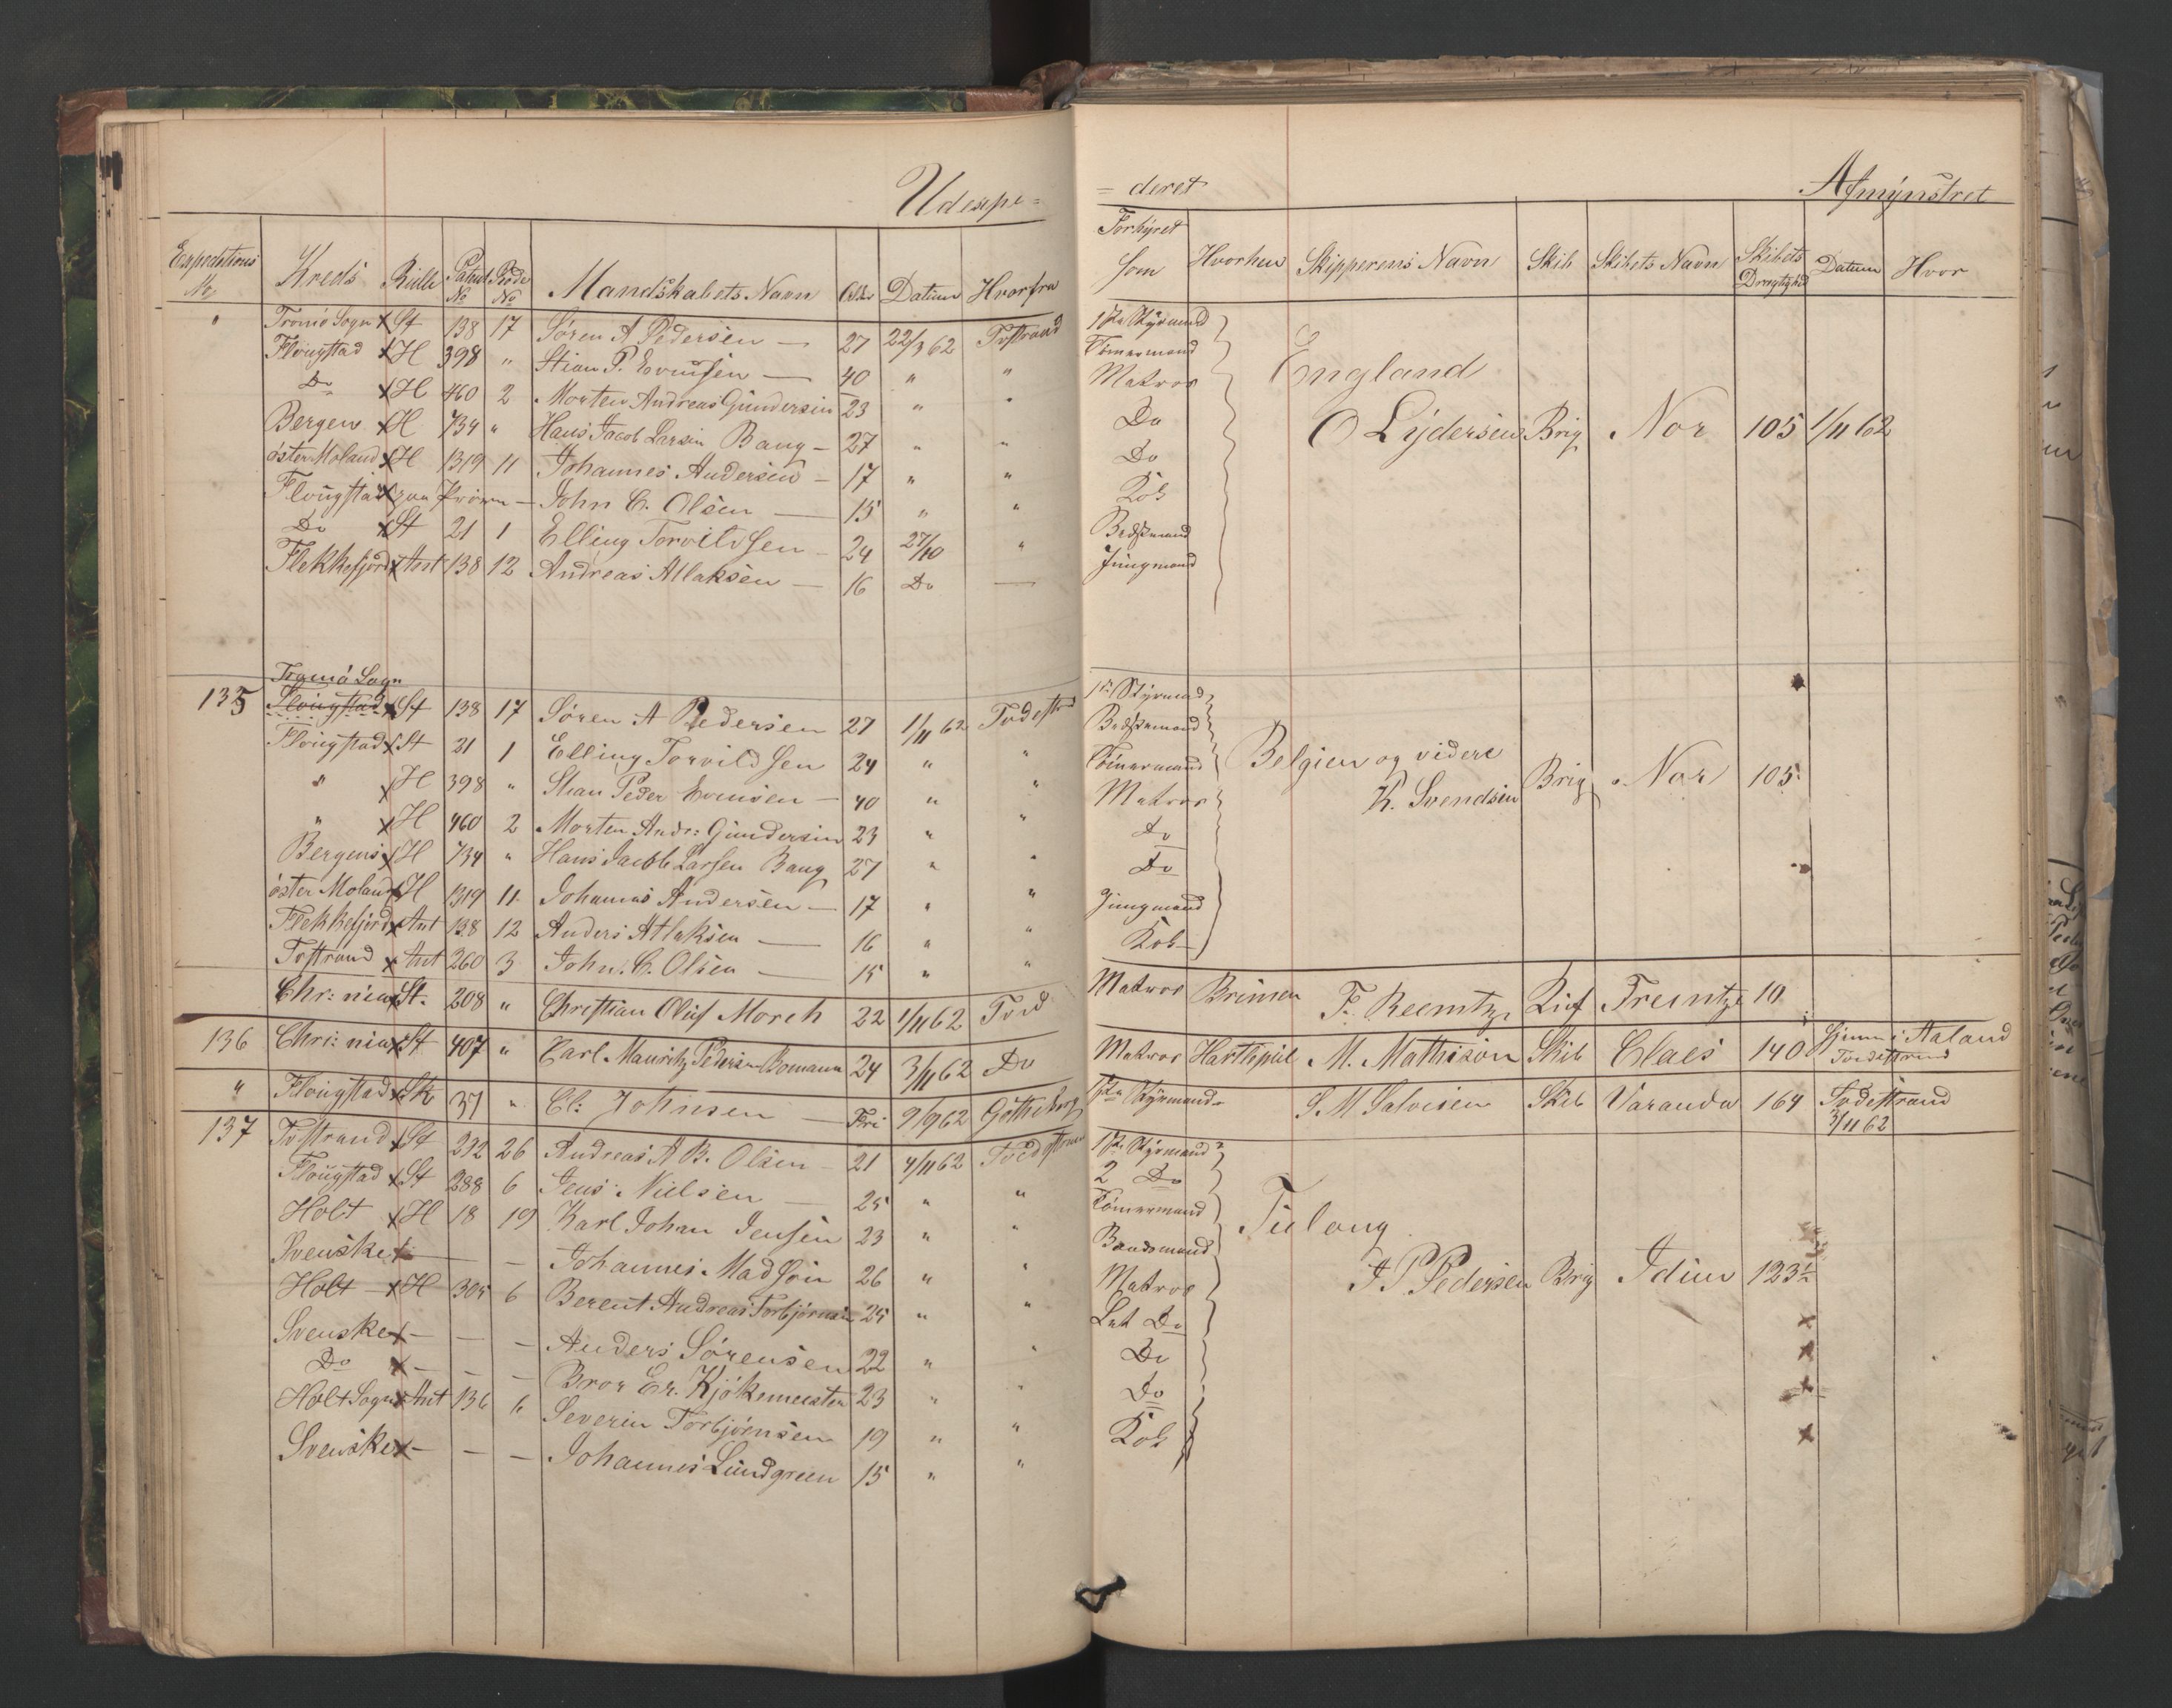 Udexpe=
=deret
Afmýnstret
Expeditions No Kreds Rulle Patent No Rode No Mandskabets Navn Alder Datum Hvorfra Forhýret som Hvorhen Skipperens Navn Skib Skibets Navn Skibets Drægtighed Datum Hvor
" Tromö Sogn x St 138 17 Sören A Pedersen — 27 22/3 62 Tvstrand 1ste Stýrmand
Flougstad x H 398 " Stian P. Evensen — 40 " " Tömermand England
Do x H 460 2 Morten Andreas Gundersen 23 " " Matros
Bergen x H 734 " Hans Jacob Larsen Bang — 27 " " Do O Lýdersen Brig Nor 105 1/11 62
öster Moland x H 1319 11 Johannes Andersen — 17 " " Do
Flougstad x John C. Olsen — 15 " " Kok
Do x St 21 1 Elling Torvildsen — 24 27/10 " Bedstemand
Flekkefjord x Ant 138 12 Andreas Atlaksen — 16 Do — Jungmand
Tromö Sogn
135 Flougstad x St 138 17 Sören A Pedersen 27 1/11 62 Tvdestd 1ste Stýrmand
Flougstad x St 21 1 Elling Torvildsen 24 " Bedstemand
" x H 398 " Stian Peder Evensen — 40 " " Tömermand Belgien og videre
" x H 460 2 Morten Andr: Gundersen 23 " " Matros K. Svendsen Brig Nor 105
Bergens x H 734 " Hans Jacob Larsen Bang 27 " " Do
öster Moland x H 1319 11 Johannes Andersen — 17 " " Do
Flekkefjord x Ant 138 12 Anders Atlaksen — 16 " " Jungmand
Tvstrand x Ant 260 3 John. C. Olsen — 15 " " Kok
Chr: nia x St. 208 " Christian Oluf Morch 22 1/11 62 Tvd Matros Brimen F. Reemtz Treintze 10
136 Chri: nia x St 407 " Carl Mauritz Pedersen Bomann 24 3/11 62 Do Matros Hartlipul M. Mathison Skib Claes 140 Hjem i Aaland Tvdestrand
" Flougstad x Sk 37 " Cl: Johnsen — Fri 9/9 62 Götheborg 1ste Stýrmand S. M Salvesen Skib Varanda 164 Tvdestrand 3/11 62
137 Tvstrand x St 292 26 Andreas A B. Olsen — 21 4/11 62 Tvedestrand 1ste Stýrmand
Flougstad x St 288 6 Jens Nielsen — 25 " " 2 Do
Holt x H 18 19 Karl Johan Jensen 23 " " Tömermand Tulong
Svenske x — — Johannes Madson 26 " " Baadsmand
Holt — x H 305 6 Berent Andreas Torbjörnsen 25 " " Matros J P Pedersen Brig Idun 123½
Svenske x — — — Anders Sörensen 22 " " Let Do
Do x — — — Bror Er. Kjökemeister 23 " " Do
Holt Sogn x Ant 136 6 Severin Torbjörnsen 19 " " Do
Svenske x — — — Johannes Lundgreen 15 " " Kok